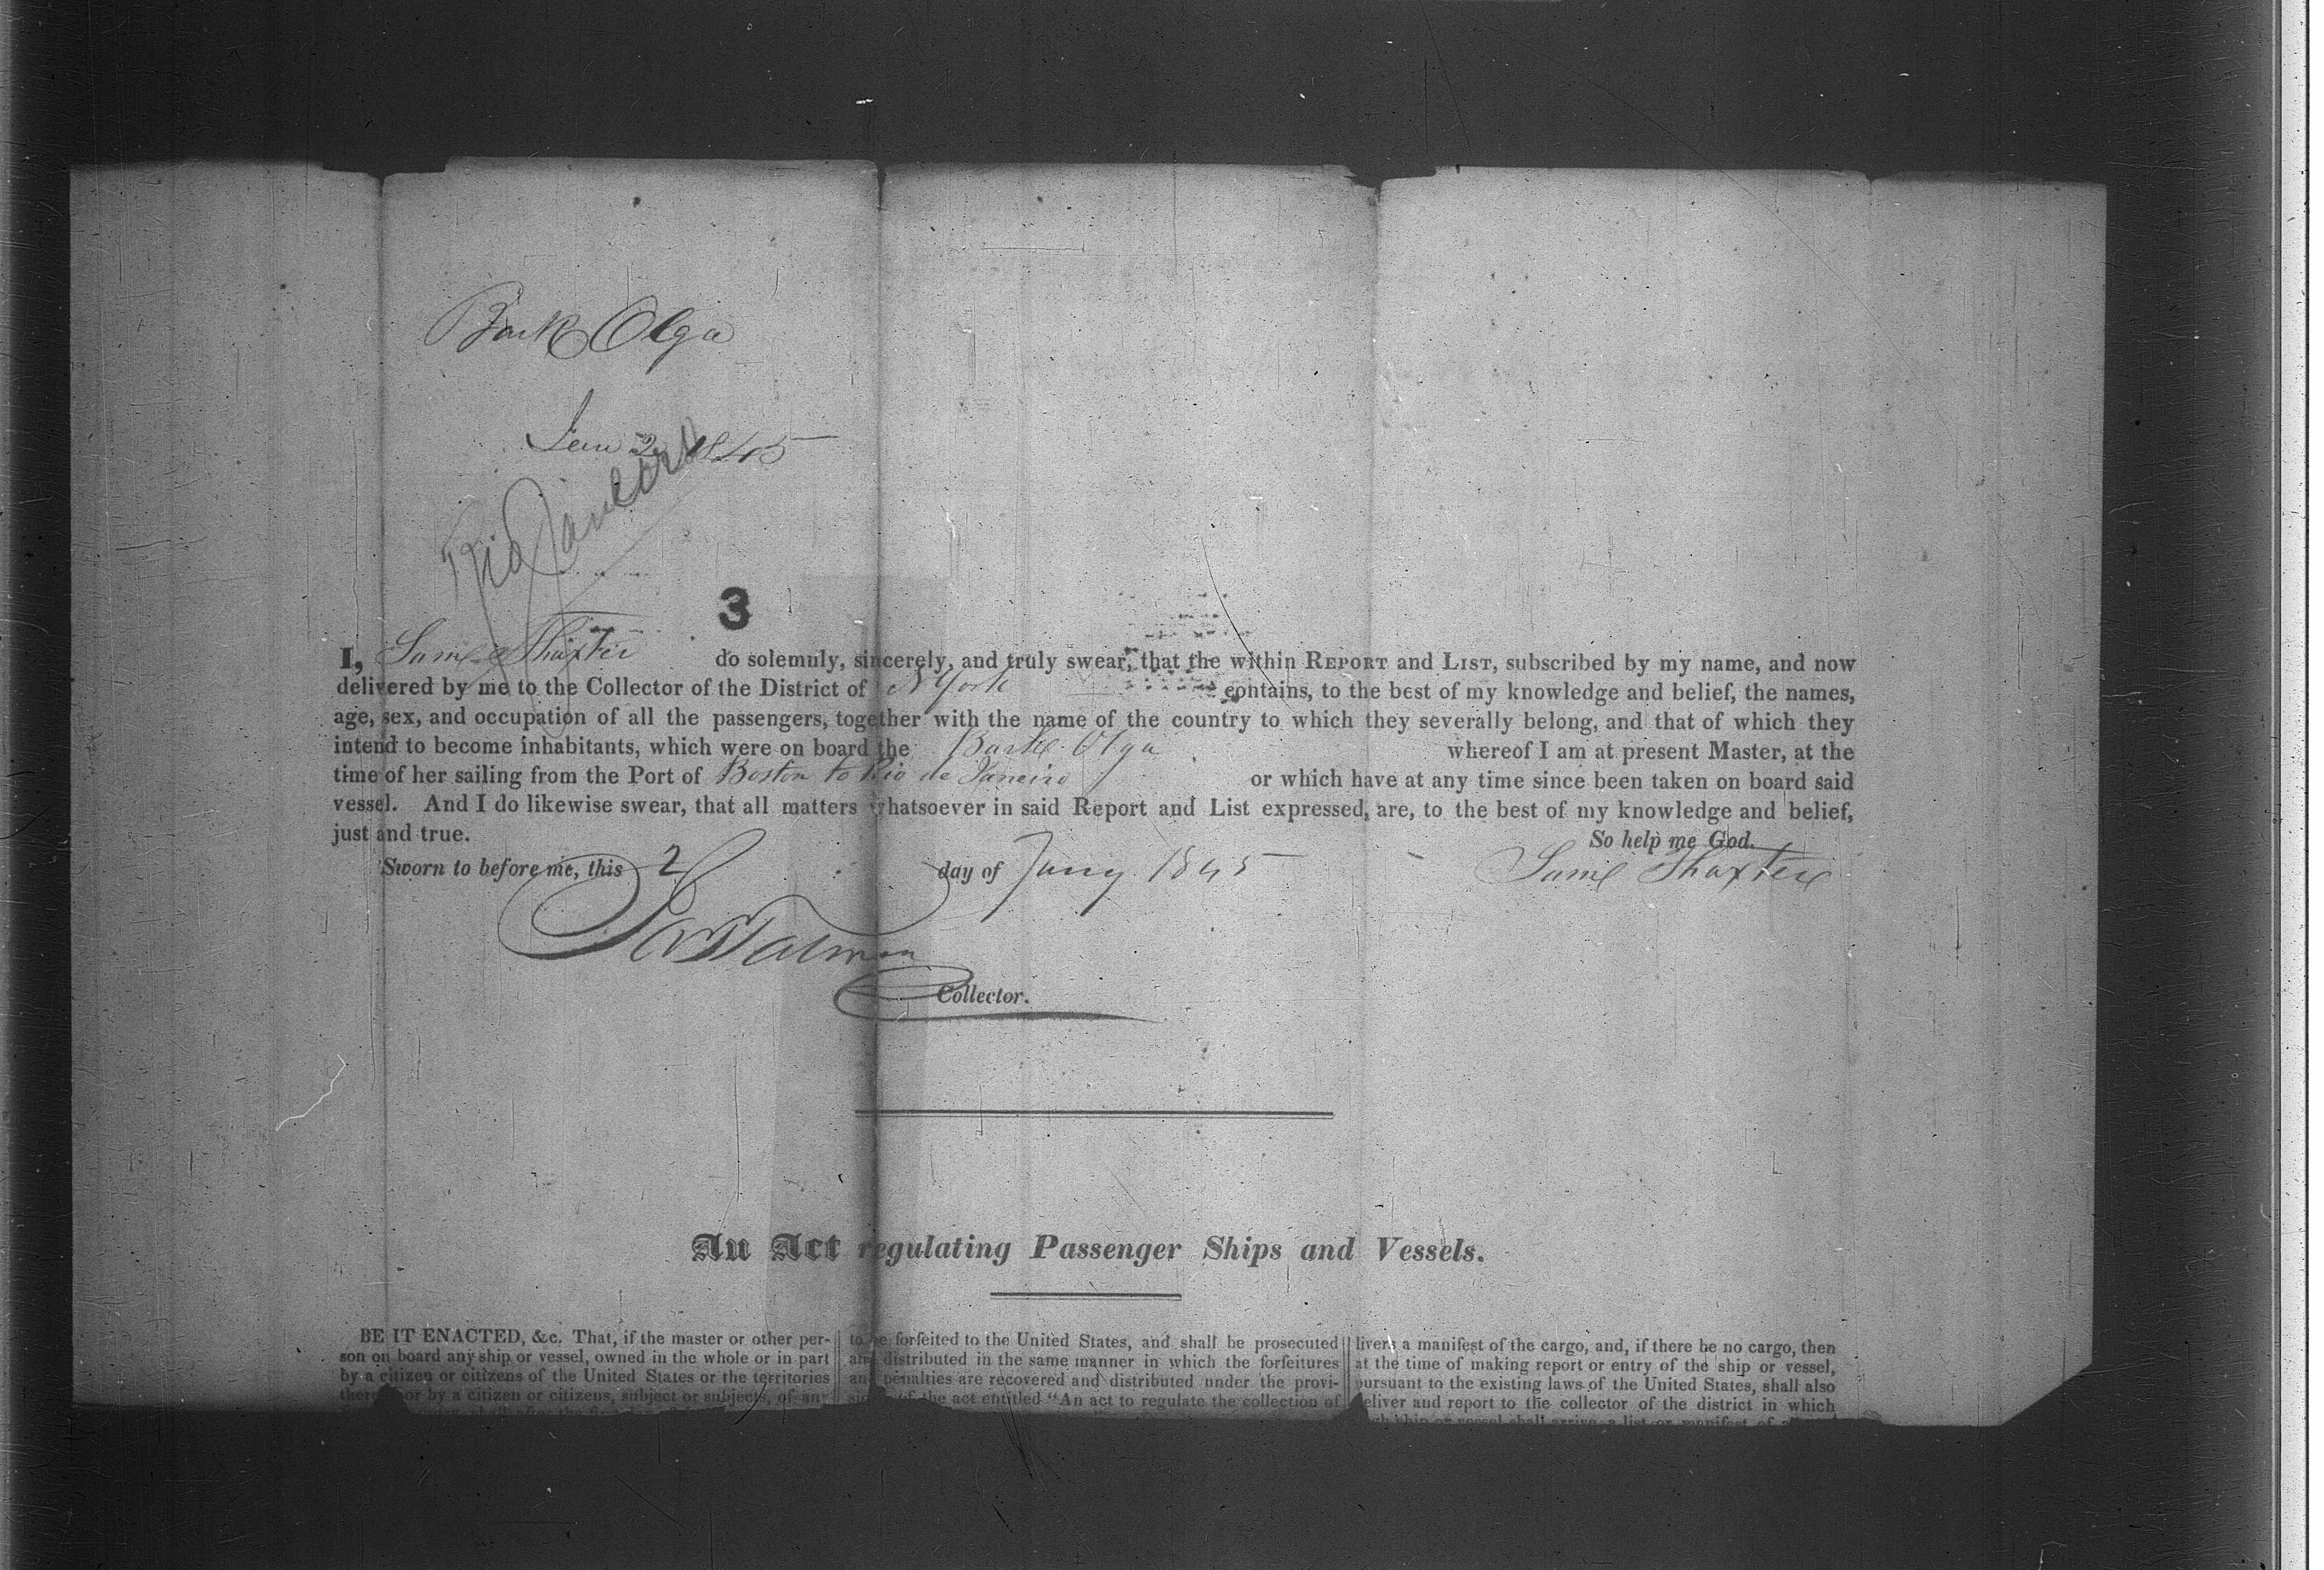 Bark Olga
Jan 2 1845
Rio Janeiro
3
I, Saml Thaxter do solemnly, sincerely, and truly swear, that the within REPORT and LIST, subscribed by my name, and now
delivered by me to the Collector of the District of N York contains, to the best of my knowledge and belief, the names,
age, sex, and occupation of all the passengers, together with the name of the country to which they severally belong, and that of which they
intend to become inhabitants, which were on board the Bark Olga whereof I am at present Master, at the
time of her sailing from the Port of Boston to Rio de Janeiro or which have at any time since been taken on board said
vessel. And I do likewise swear, that all matters whatsoever in said Report and List expressed, are, to the best of my knowledge and belief,
just and true. So help me God.
Sworn to before me, this 2 day of Jany 1845 Saml Thaxter
Talman
Collector.
An Act regulating Passenger Ships and Vessels.
BE IT ENACTED, &c. That, if the master or other per-
son on board any ship or vessel, owned in the whole or in part
by a citizen or citizens of the United States or the territories
thereof or by a citizen or citizens, subject or subjects, of any
to be forfeited to the United States, and shall be prosecuted
and distributed in the same manner in which the forfeitures
and penalties are recovered and distributed under the provi-
of the act entitled "An act to regulate the collection of
liver a manifest of the cargo, and, if there be no cargo, then
at the time of making report or entry of the ship or vessel,
pursuant to the existing laws of the United States, shall also
deliver and report to the collector of the district in which
ship or vessel shall arrive, a list or manifest of